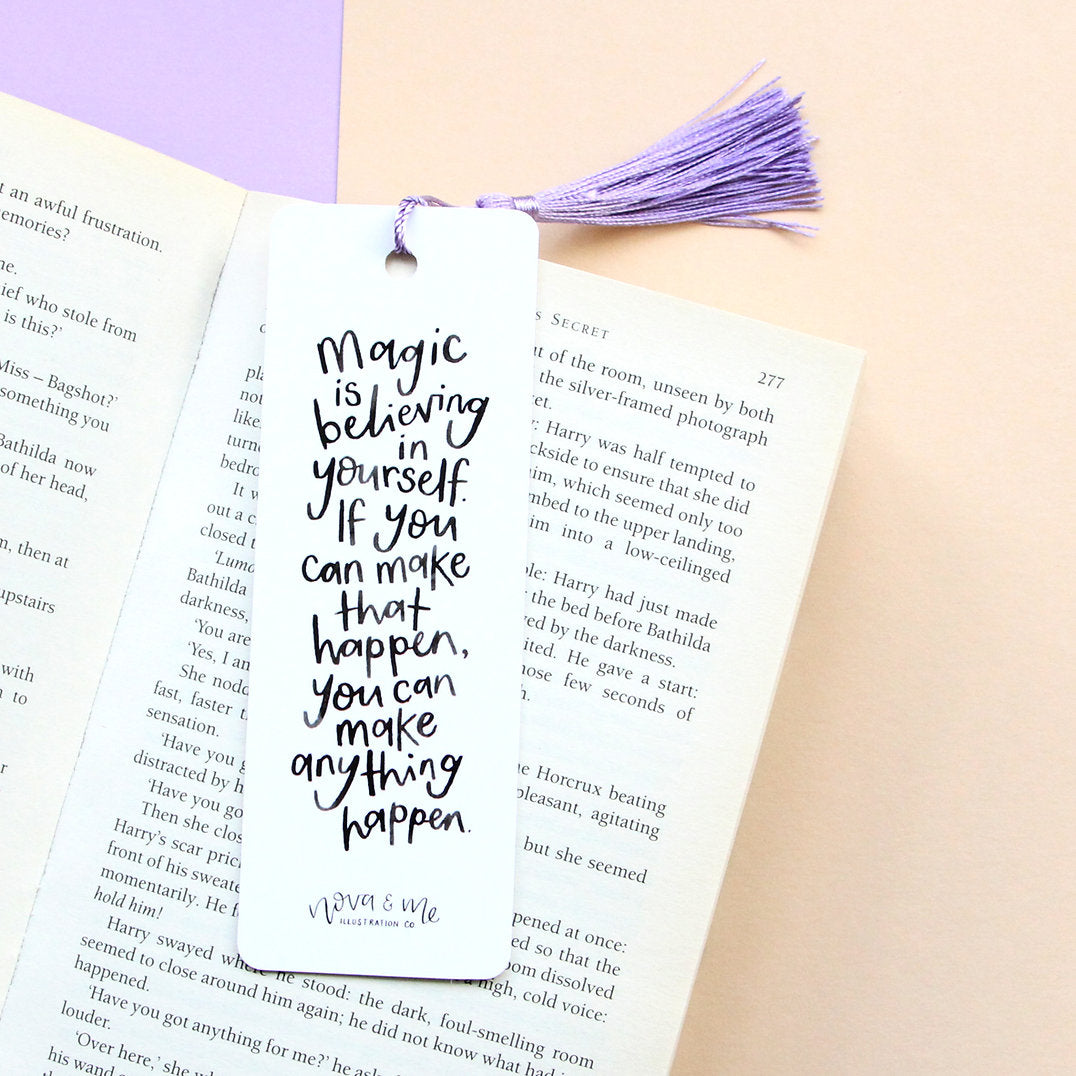 t an awful frustration.
emories?'
ne.
ief who stole from
is this?'
Miss – Bagshot?'
something you
Bathilda now
of her head,
m, then at
upstairs
with
to
r
Magic
is
believing
in
yourself.
If you
can make
that
happen,
you can
make
anything
happen.
nova & me
ILLUSTRATION CO.
S SECRET
277
ut of the room, unseen by both
the silver-framed photograph
et.
r: Harry was half tempted to
ckside to ensure that she did
im, which seemed only too
mbed to the upper landing,
im into a low-ceilinged
pla
not
like
turne
bedro
It w
out a c
closed t
'Lumo
Bathilda
darkness,
'You are
'Yes, I am
She nodd
fast, faster t
sensation.
'Have you g
distracted by h
'Have you go
Then she clos
Harry's scar pric
front of his sweate
momentarily. He f
hold him!
ble: Harry had just made
the bed before Bathilda
ed by the darkness.
ited. He gave a start:
hose few seconds of
h.
e Horcrux beating
pleasant, agitating
but she seemed
pened at once:
ed so that the
oom dissolved
a high, cold voice:
Harry swayed where he stood: the dark, foul-smelling room
seemed to close around him again; he did not know what had
happened.
'Have you got anything for me?' he ask
louder.
'Over here,' she w
his wand